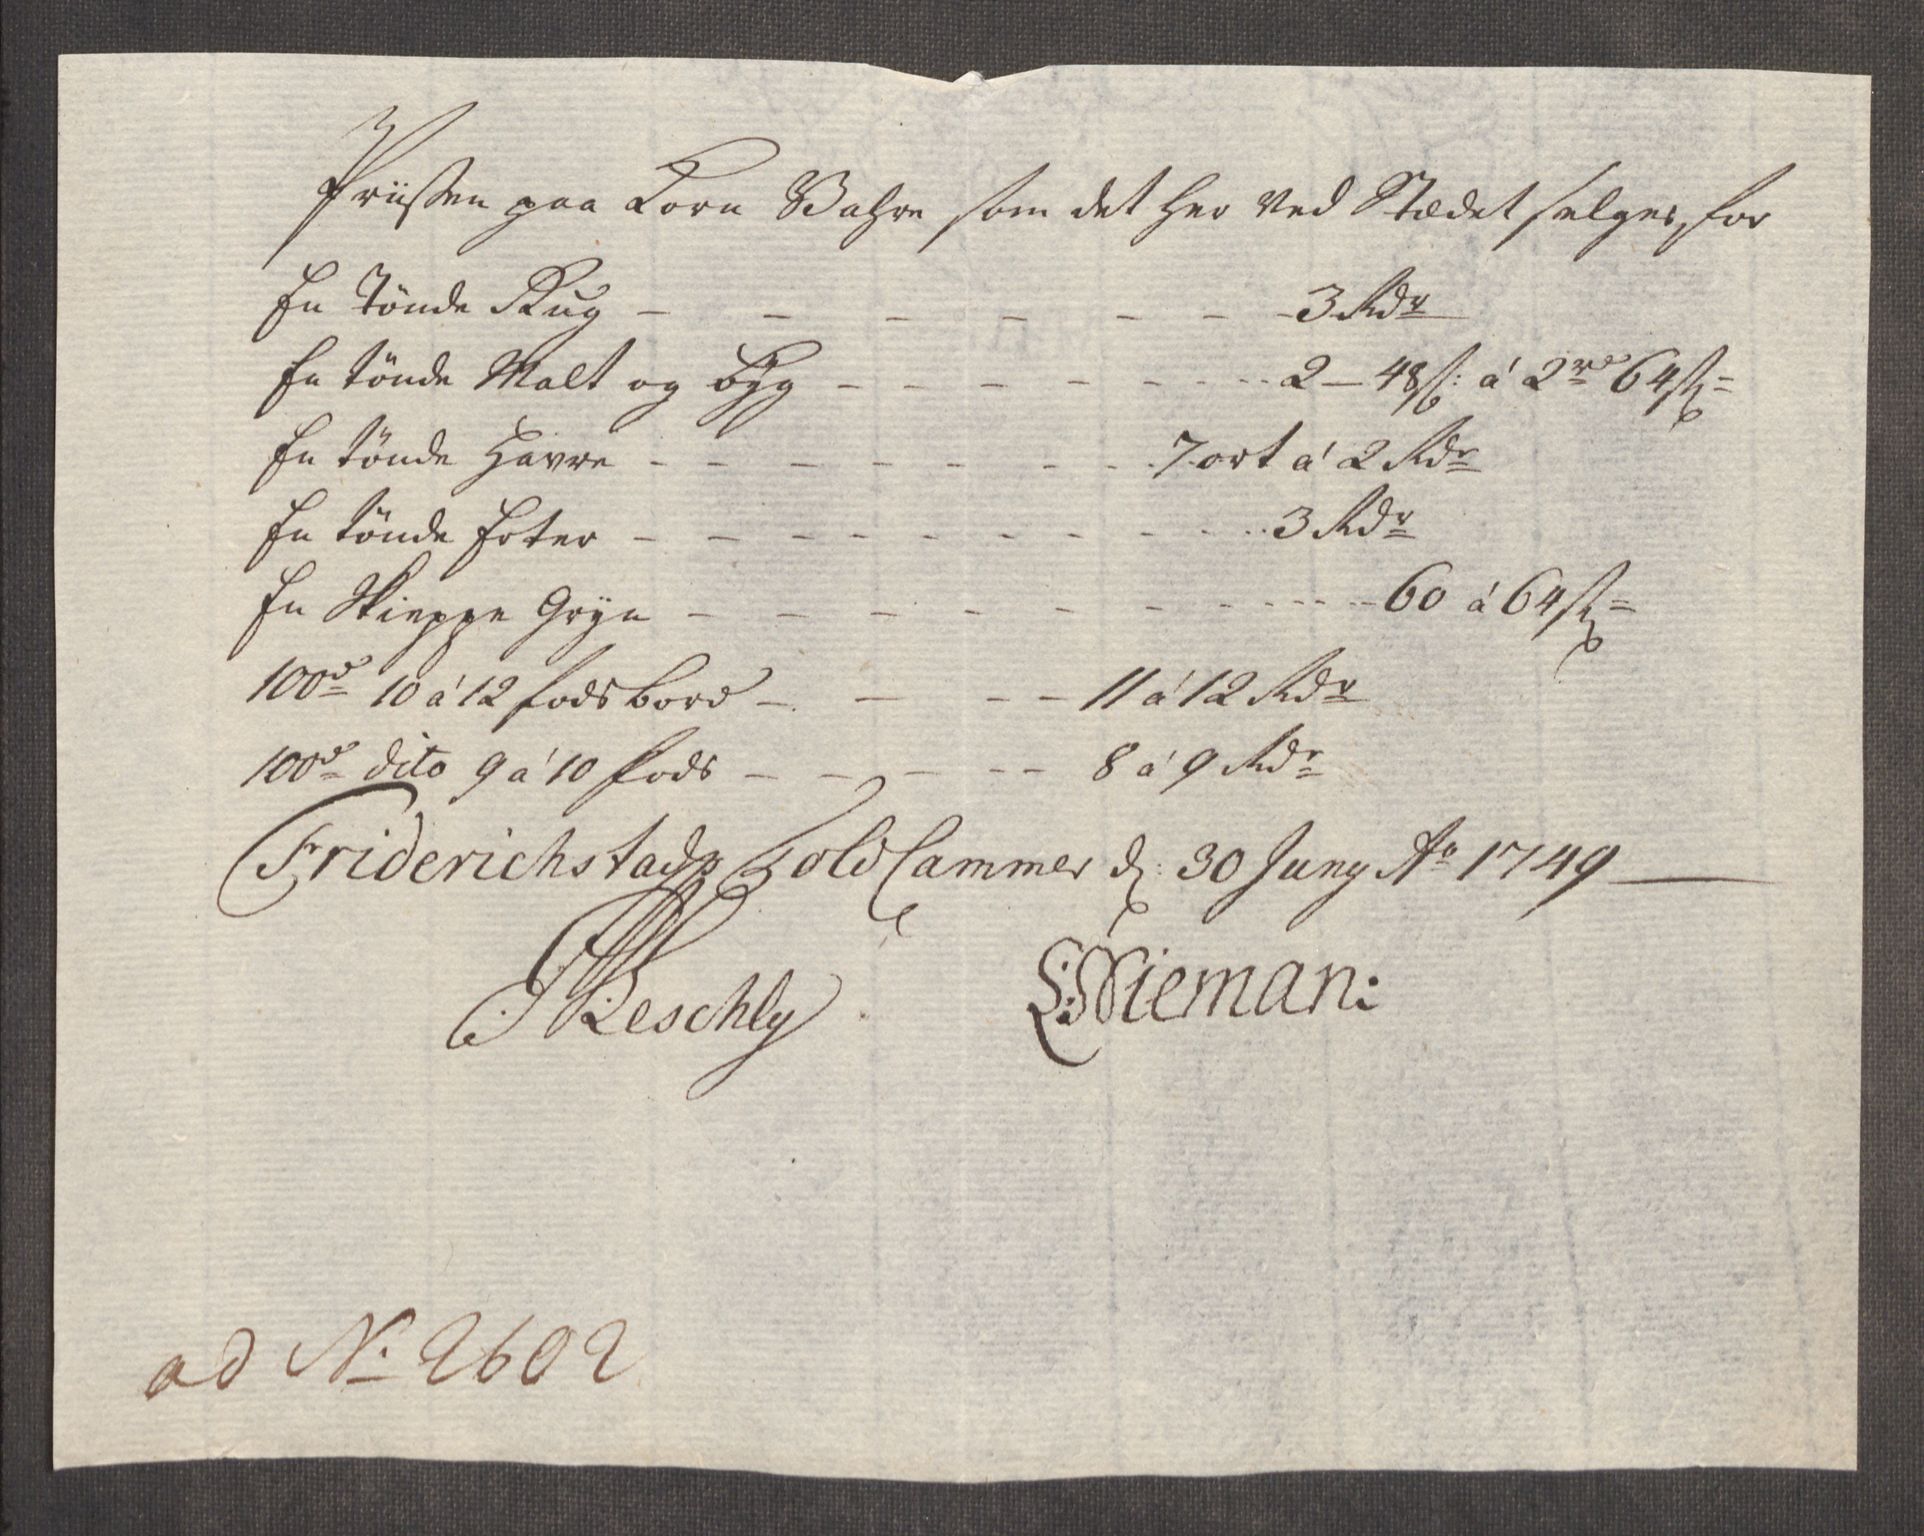 Priissen paa Korn Wahre som det her ved Stædet selges, for
En Tönde Rug - - - - - - - 3 Rdr
En tönde Malt og Byg - - - - - - - 2 - 48 s: á 2 rd 64 s=
En tönde Havre - - - - - - - 7 ort á 2 Rdr
En tönde Erter - - - - - - - 3 Rdr
En Skieppe Gryn - - - - - - - 60 á 64 s=
100d 10 á 12 fods bord - - - - 11 á 12 Rdr
100d dito 9 á 10 fods - - - - - 8 á 9 Rdr
Friderichstads Told Cammer d: 30 Juny Ao 1749
Reschly L: Nieman:
ad No. 2602